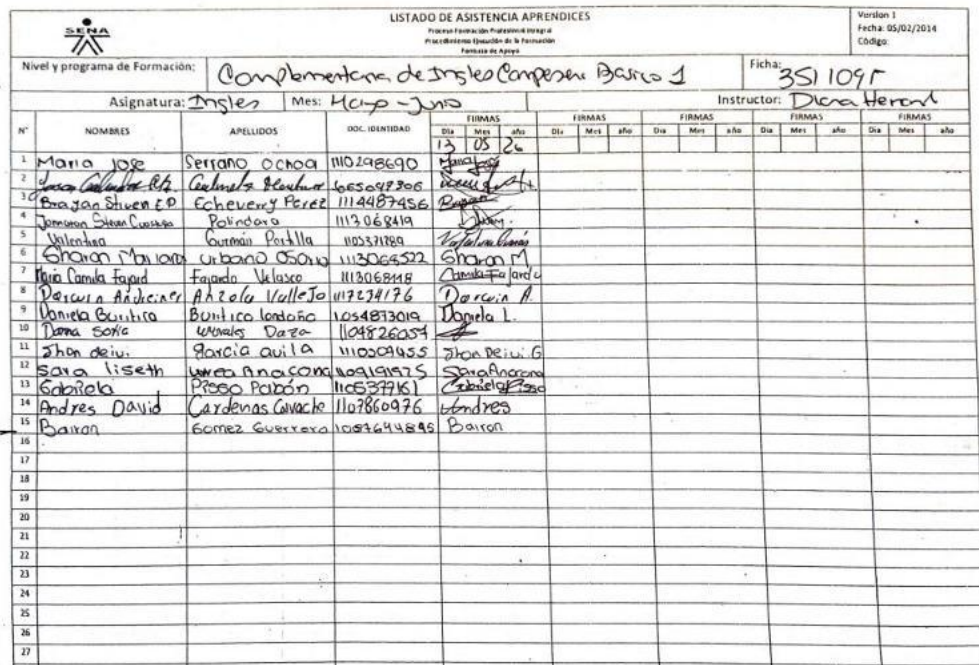 SENA
LISTADO DE ASISTENCIA APRENDICES
Proceso Formación Profesional Integral
Procedimiento Ejecución de la Formación
Formato de Apoyo
Version 1
Fecha: 05/02/2014
Código:
Nivel y programa de Formación: Complementaria de Ingles Campesena Basico 1 Ficha:
Asignatura: Ingles Mes: Mayo - Junio Instructor: Diana
N° NOMBRES APELLIDOS DOC. IDENTIDAD FIRMAS FIRMAS FIRMAS FIRMAS FIRMAS
Dia Mes año Dia Mes año Dia Mes año Dia Mes año Dia Mes año
13 05 26
1 Maria Jose Serrano Ochoa 1110298690 Maria Jose
2
3 Brayan Stiven E.P Echeverry Perez 1114487456
4 Polindara 1113068419
5 Valentina Guzmán Portilla 1105371289
6 Sharon Mariana Urbano Osorio Sharon M
7 Maria Camila Fajard Fajardo Velasco Camila Fajardo
8 Darwin Anzola Vallejo 1117234176 Darwin A.
9 Daniela Buritica Buritica londoño 1054873019 Daniela L.
10 Dana Sofia Morales Daza 1104826057
11 Jhon deivi garcia avila Jhon Deivi G
12 sara liseth urrea Anacona Sara Anacona
13 Gabriela Pisso Pabón Gabriela Pisso
14 Andres David Cardenas 1107860976 Andres
15 Bairon Gomez Guerrero Bairon
16
17
18
19
20
21
22
23
24
25
26
27